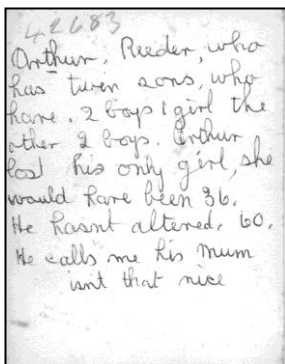 42683
Arthur. Reeder, who
has twin sons, who
have. 2 boys 1 girl the
other 2 boys. Arthur
lost his only girl, she
would have been 36.
He hasnt altered. 60.
He calls me his mum
isnt that nice